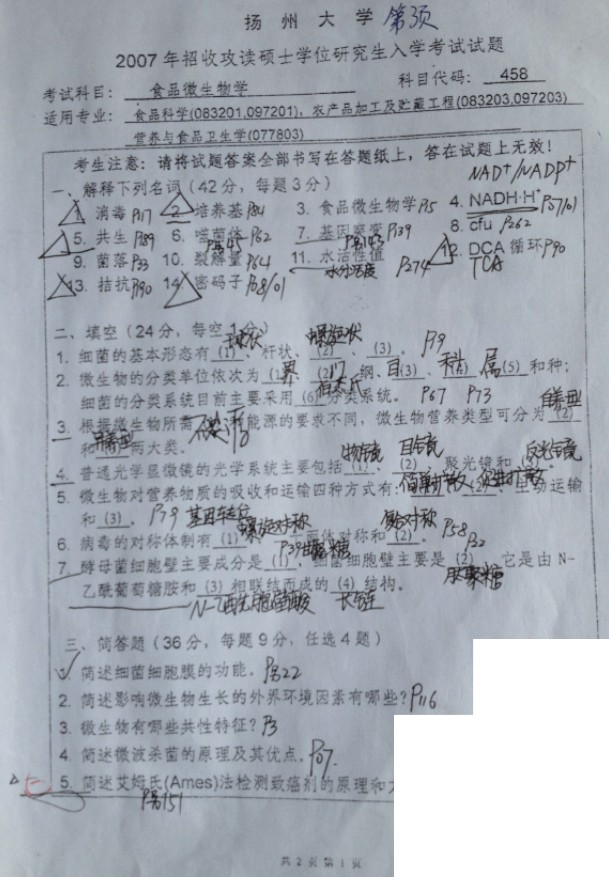 扬州大学
2007年招收攻读硕士学位研究生入学考试试题
考试科目： 食品微生物学 科目代码： 458
适用专业： 食品科学(083201.097201)，农产品加工及贮藏工程(083203.097203)
营养与食品卫生学(077803)
考生注意：请将试题答案全部书写在答题纸上，答在试题上无效！
NAD+/NADP+
一、解释下列名词（42分，每题3分）
1. 消毒P17 2. 培养基P84 3. 食品微生物学P5 4. NADH·H+
5. 共生P89 6. 噬菌体P62 7. 基因突变P139 8. cfu P262
9. 菌落P33 10. 裂解量P64 11. 水活性值 P274 12. DCA循环P90
水分活度 TCA
13. 拮抗P90 14. 密码子
二、填空（24分，每空1分）
球状 螺旋状
1. 细菌的基本形态有 (1) 、杆状、 (2) 、 (3) 。 P9
2. 微生物的分类单位依次为 界 、 门 纲、目(3) 、 科 、属(5) 和种；
细菌的分类系统目前主要采用 (6) 分类系统。 P67 P73
自养型
3. 根据微生物所需 能源的要求不同，微生物营养类型可分为 (2)
和 两大类。
物镜 目镜 反光镜
4. 普通光学显微镜的光学系统主要包括 (1) 、 (2) 、聚光镜和 (3) 。
5. 微生物对营养物质的吸收和运输四种方式有： 简单扩散 、 促进扩散 、主动运输
和 (3) 。 P79 基团转位
螺旋对称 复合对称
6. 病毒的对称体制有 (1) 、 面体对称和 (2) 。 P58
P32
P39 葡聚糖
7. 酵母菌细胞壁主要成分是 (1) ，细菌细胞壁主要是 (2) ，它是由N-
肽聚糖
乙酰葡萄糖胺和 (3) 相联结而成的 (4) 结构。
N-乙酰胞壁酸 长链
三、简答题（36分，每题9分，任选4题）
1. 简述细菌细胞膜的功能。 P22
2. 简述影响微生物生长的外界环境因素有哪些？ P116
3. 微生物有哪些共性特征？ P3
4. 简述微波杀菌的原理及其优点。 P07.
5. 简述艾姆氏(Ames)法检测致癌剂的原理和
P151
共2页第1页